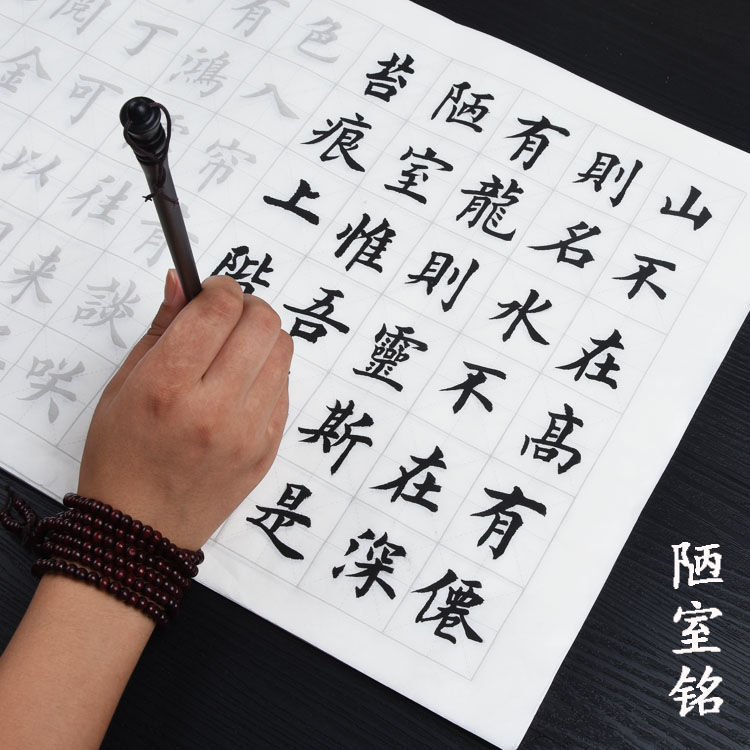 山不在髙有僊
則名水不在深
有龍則靈斯是
陋室惟吾
苔痕上階
色入帘青談咲
有鴻往来
丁可以
閱金
陋室铭